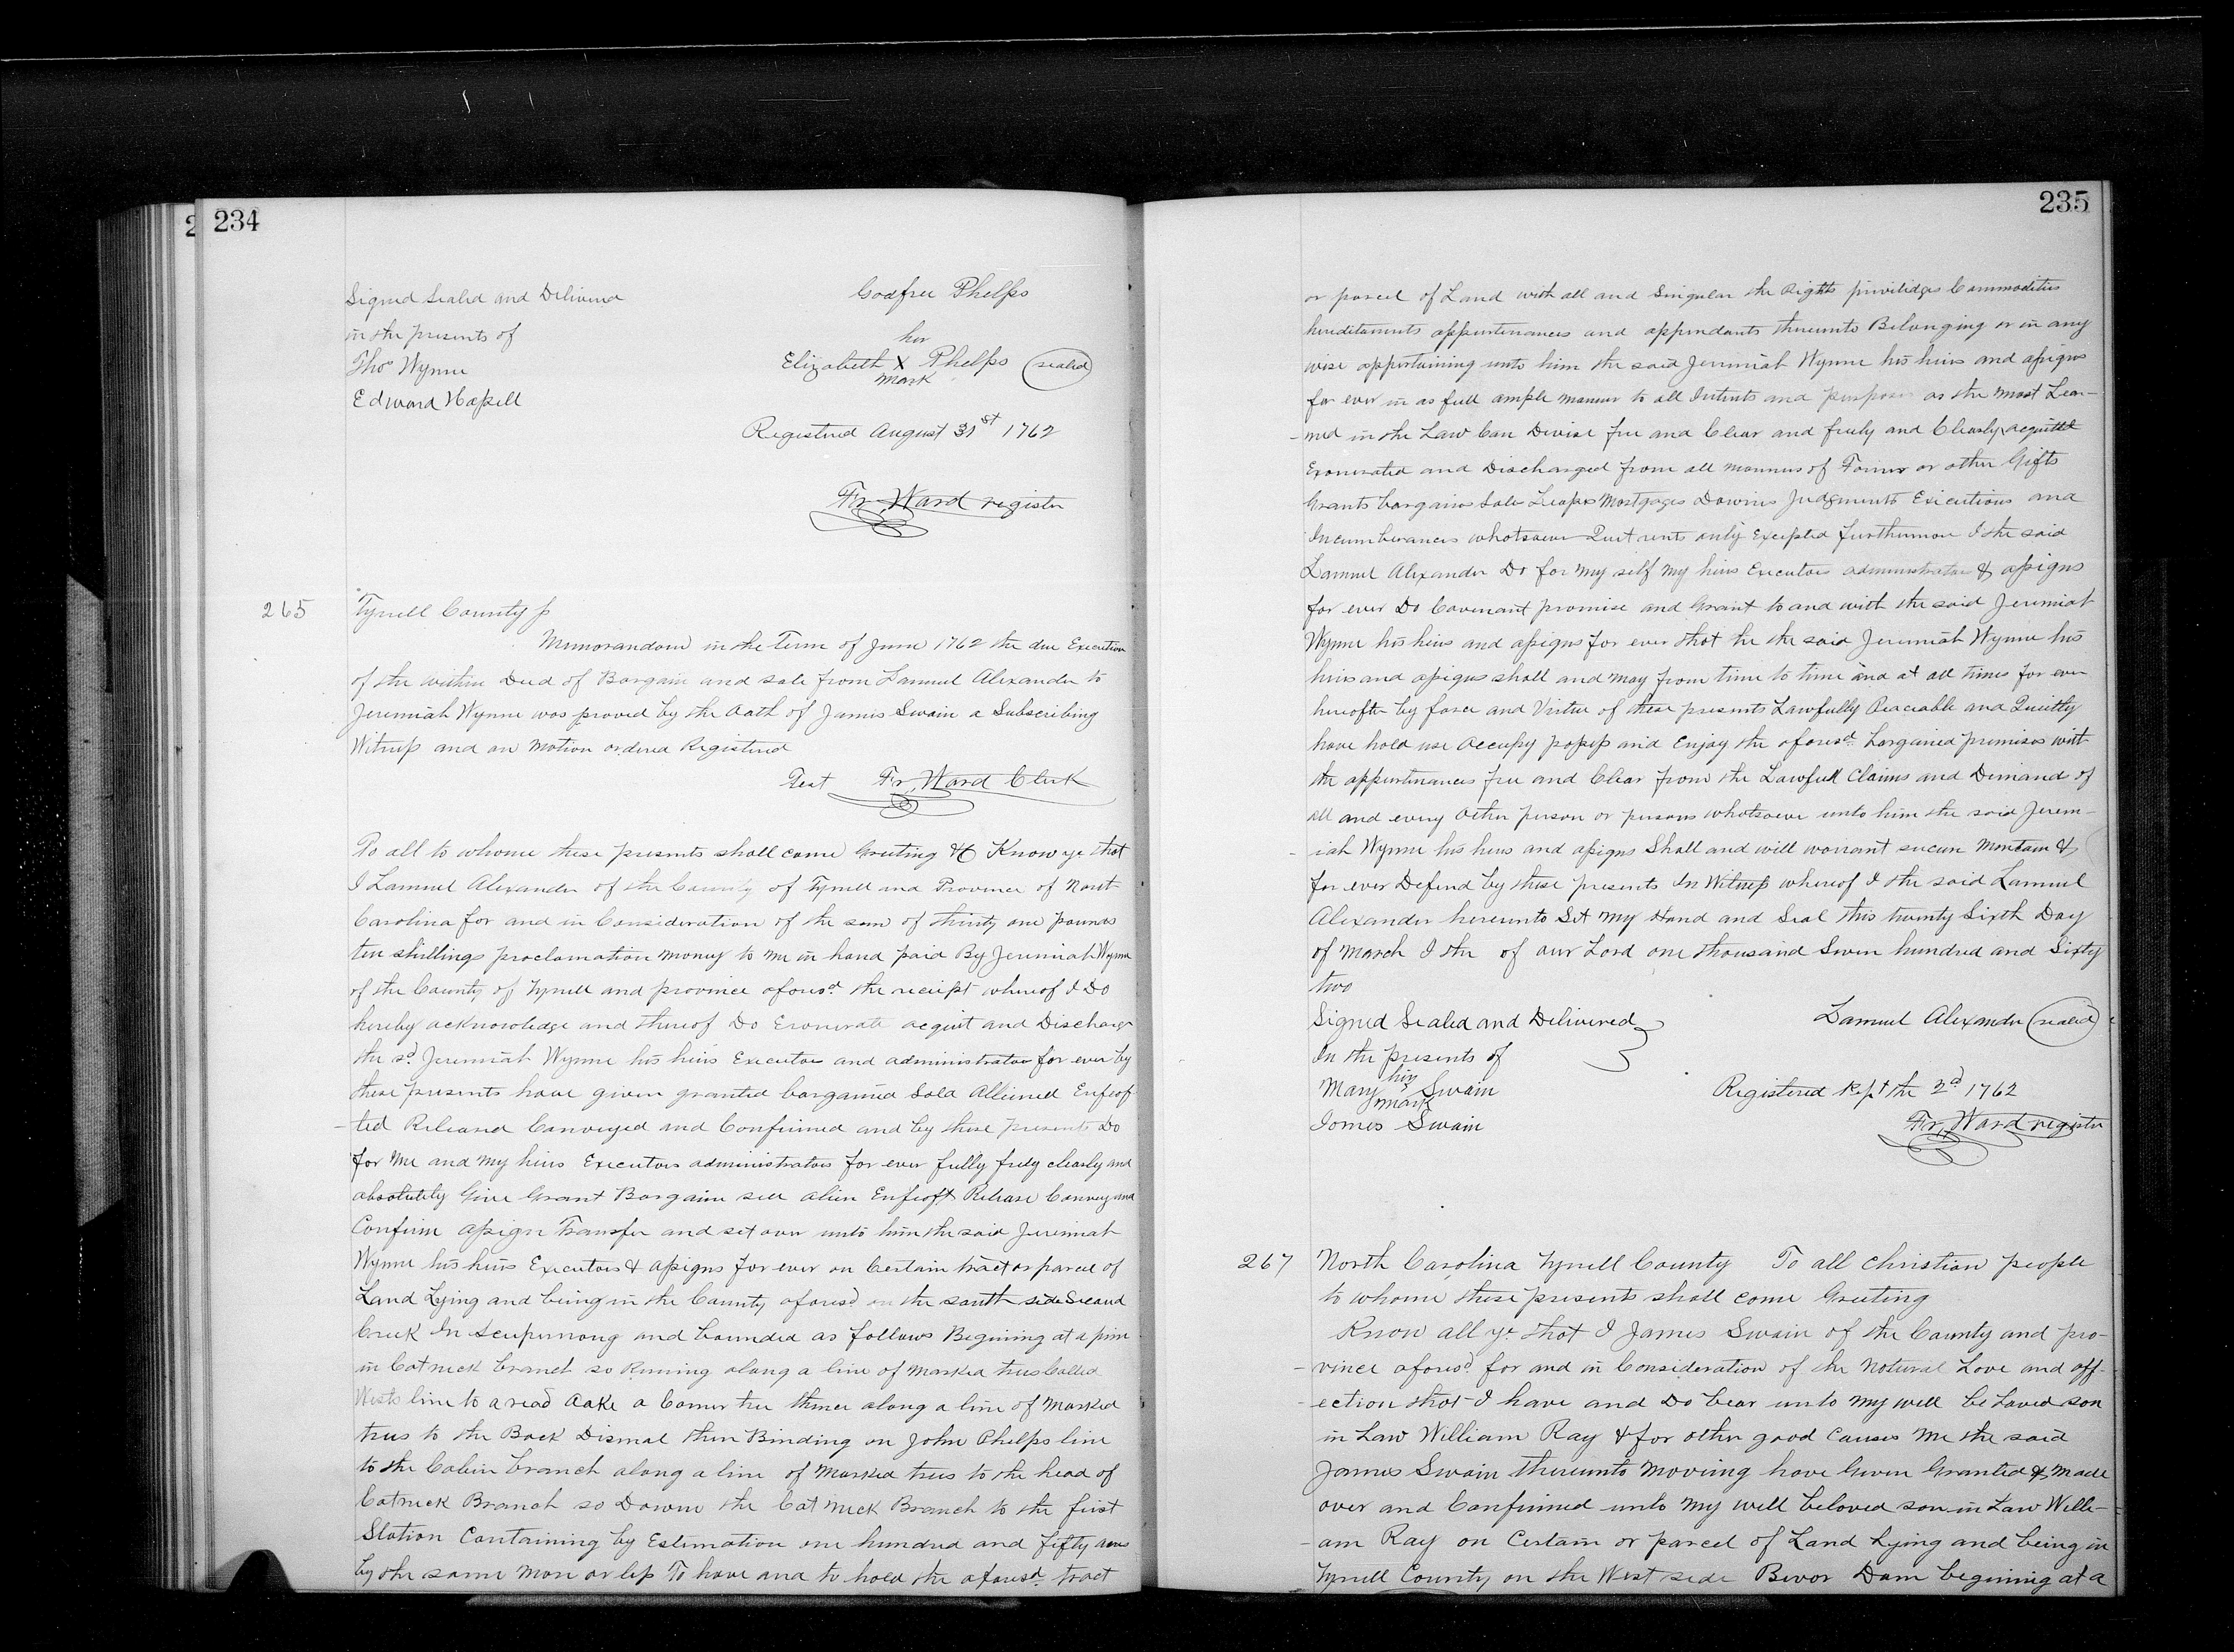 234
Signed Sealed and Delivered
in the presents of
Thos Wynne
Edward Haszell
Godfree Phelps
her
Elizabeth X Phelps (sealed)
mark
Registered August 31st 1762
Fr, Ward register
265
Tyrell County ss
Memorandom in the Term of June 1762 the due Execution
of the within Deed of Bargain and sale from Samuel Alexander to
Jeremiah Wynne was proved by the Oath of James Swain a Subscribing
Witness and on Motion ordered Registered
Test Fr, Ward Clerk
To all to whome these presents shall come Greeting &C Know ye that
I Samuel Alexander of the County of Tyrell and Province of North
Carolina for and in Consideration of the sum of thirty one pounds
ten shillings proclamation money to me in hand paid By Jeremiah Wynne
of the County of Tyrell and province aforesd the receipt whereof I Do
hereby acknowledge and thereof Do Exonerate acquit and Discharge
the sd Jeremiah Wynne his heirs Executors and administrators for ever by
these presents have given granted bargained Sold Alliened Enfeof-
-ted Released Conveyed and Confirmed and by these presents Do
for me and my heirs Executors administrators for ever fully freely clearly and
absolutely Give Grant Bargain sell alien Enfeoft Release Convey and
Confirm assign Transfer and set over unto him the said Jeremiah
Wynne his heirs Executors & assigns for ever on Certain tract or parcel of
Land Lying and being in the County aforesd on the south side Second
Creek In Scupernong and bounded as follows Begining at a pine
in Catneck branch so Runing along a line of Marked trees Called
Wests line to a read Oake a Corner tree thence along a line of Marked
trees to the Back Dismal then Binding on John Phelps line
to the Cabin branch along a line of Marked trees to the head of
Catneck Branch so Downe the Cat neck Branch to the first
Station Containing by Estimation one hundred and fifty acres
by the same more or less To have and to hold the aforesd tract
235
or parcel of Land with all and Singular the Rights privilidges Commodities
hereditaments appurtenances and appendants thereunto Belonging or in any
wise appertaining unto him the said Jeremiah Wynne his heirs and assigns
for ever in as full ample manner to all Intents and purposes as the most Lear-
-ned in the Law Can Devise free and Clear and freely and Clearly acquitted
Exonerated and Discharged from all manners of Former or other Gifts
Grants bargains Sale Leases Mortgages Dowries Judgments Executions and
Incumberances whotsoever Quit rents only Excepted furthermore I the said
Samuel Alexander Do for my self my heirs Executors administrators & assigns
for ever Do Covenant promise and Grant to and with the said Jeremiah
Wynne his heirs and assigns for ever that he the said Jeremiah Wynne his
heirs and assigns shall and may from time to time and at all times for ever
hereafter by force and Virtue of these presents Lawfully Peaceable and Quietly
have hold use Occupy possess and Enjoy the aforesd bargained premises with
the appurtenances free and Clear from the Lawfull Claims and Demands of
all and every other person or persons whotsoever unto him the said Jerem-
-iah Wynne his heirs and assigns Shall and will warrant secure Mentain &
for ever Defend by these presents In Witness whereof I the said Samuel
Alexander hereunto Set my Hand and Seal this twenty Sixth Day
of March I the of our Lord one thousand Seven hundred and Sixty
two
Signed Sealed and Delivered
In the presents of
his
Mary Swain
mark
James Swain
Samuel Alexander (sealed)
Registered Sept the 2d 1762
Fr, Ward register
267
North Carolina Tyrell County To all christian people
to whome these presents shall come Greeting
Know all ye that I James Swain of the County and pro-
-vince aforesd for and in Consideration of the Natural Love and aff-
-ection that I have and Do bear unto my well be loved son
in Law William Ray & for other good Causes me the said
James Swain thereunto moveing have Given Granted & made
over and Confirmed unto my well beloved son in Law Willi-
-am Ray on Certain or parcel of Land Lying and being in
Tyrell County on the West side Bevor Dam begining at a